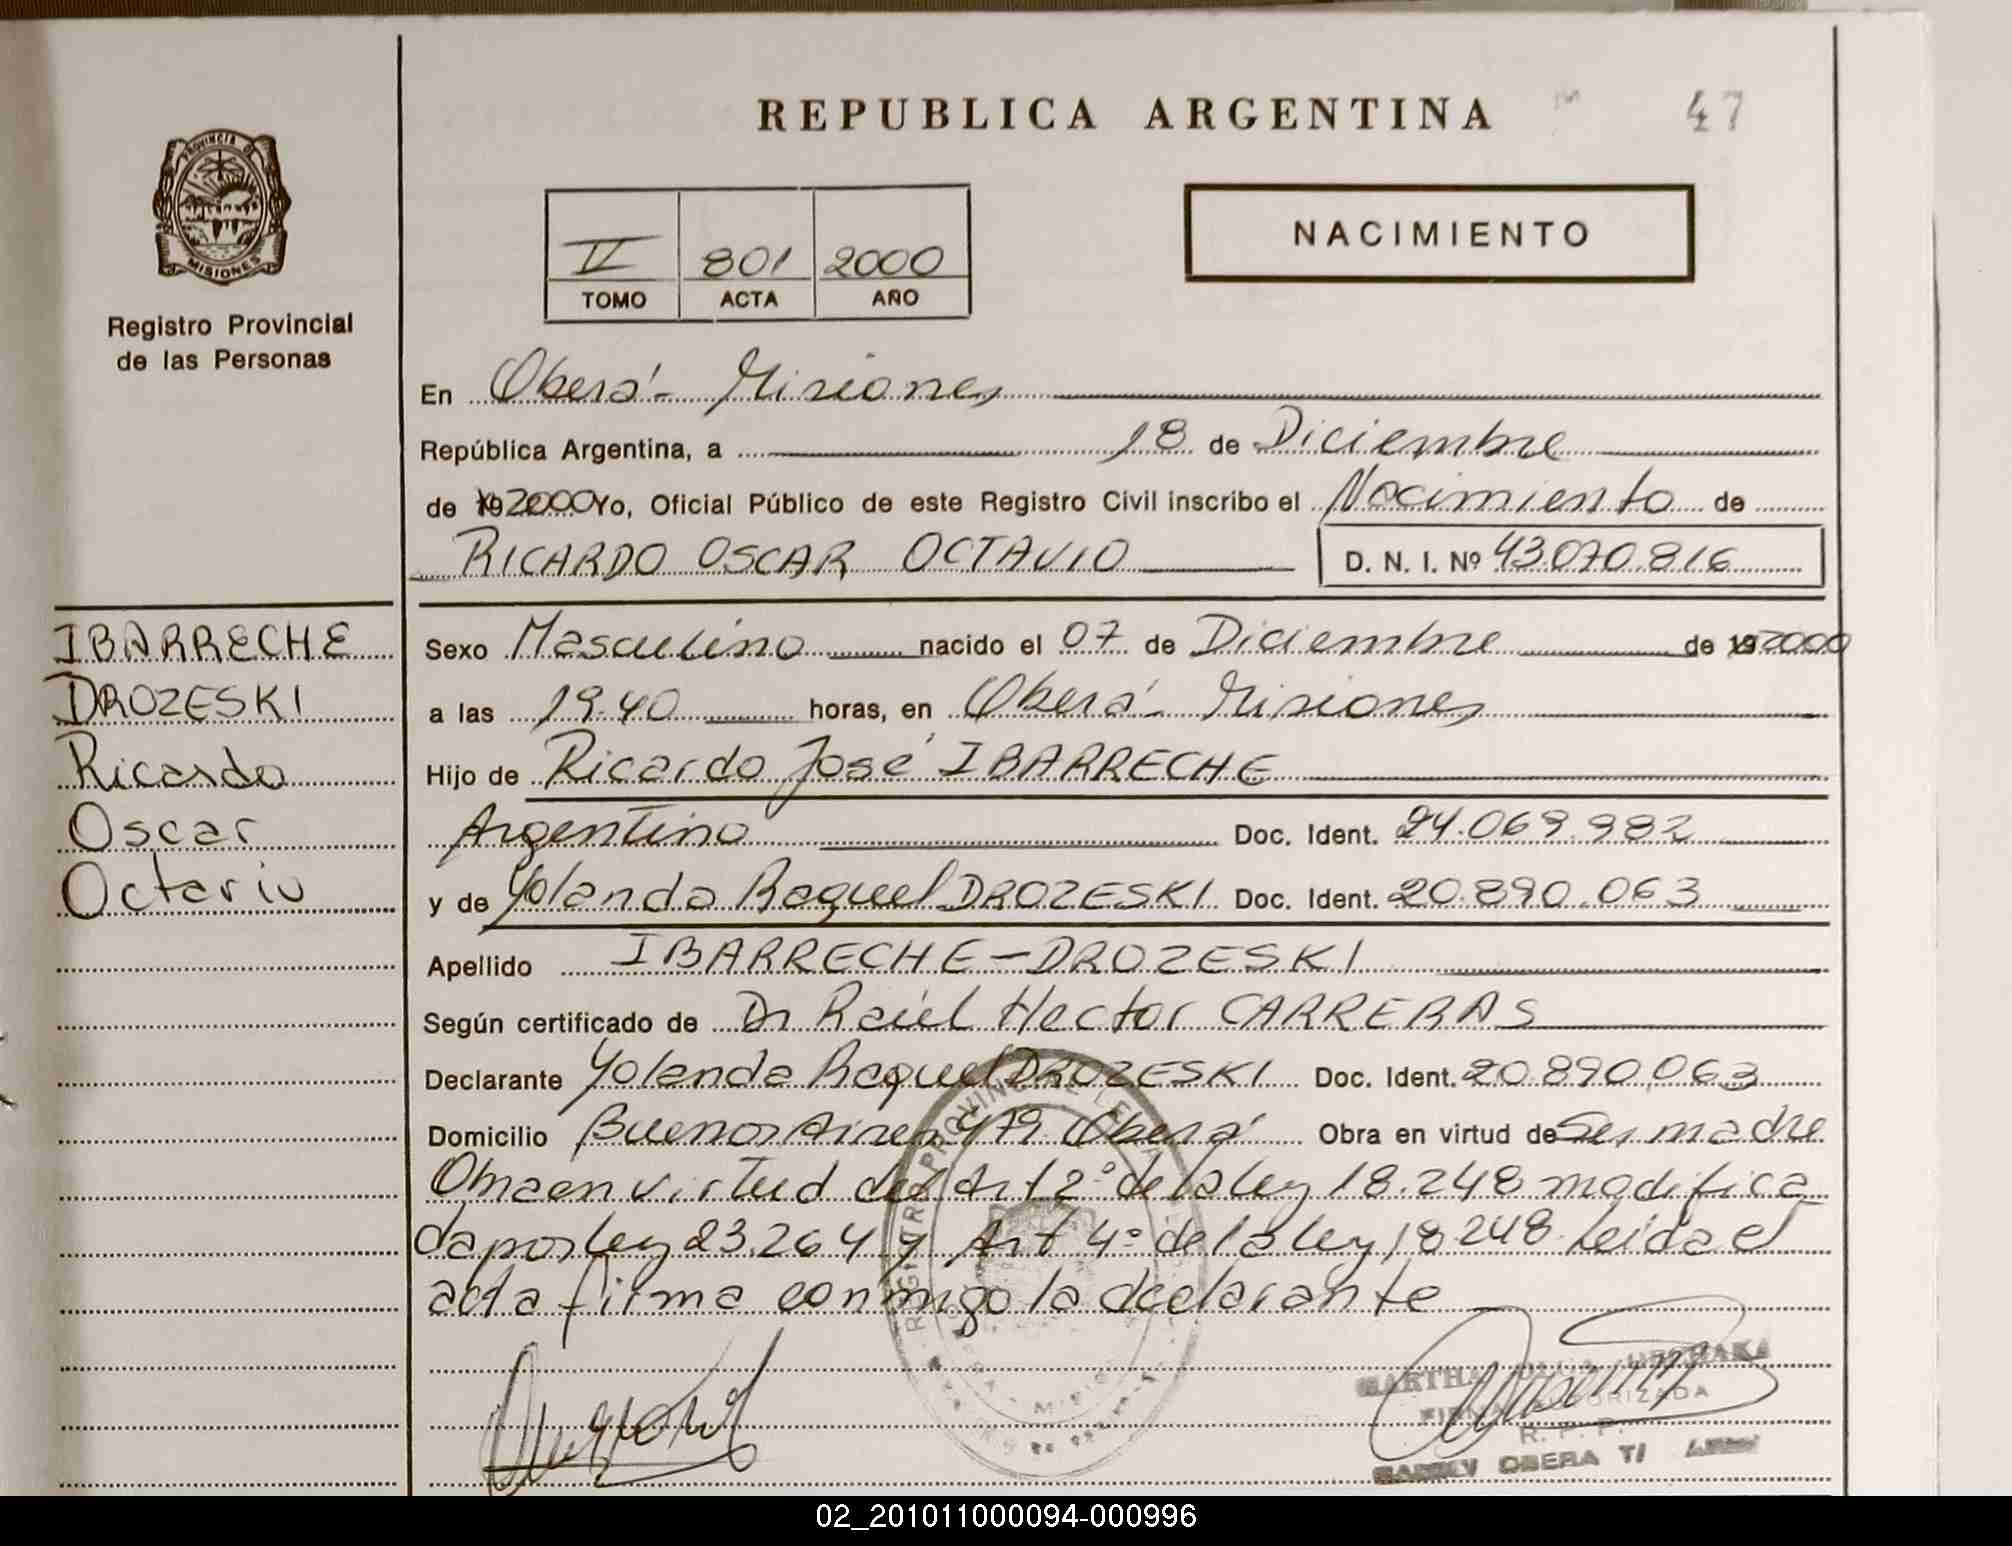 REPUBLICA ARGENTINA
47
PROVINCIA DE
MISIONES
Registro Provincial
de las Personas
IV 801 2000
TOMO ACTA AÑO
NACIMIENTO
En Oberá - Misiones
República Argentina, a 18 de Diciembre
de 19 2000 Yo, Oficial Público de este Registro Civil inscribo el Nacimiento de
RICARDO OSCAR OCTAVIO D. N. I. Nº 43.070.816
IBARRECHE
DROZESKI
Ricardo
Oscar
Octavio
Sexo Masculino nacido el 07 de Diciembre de 19 2000
a las 19.40 horas, en Oberá - Misiones
Hijo de Ricardo José IBARRECHE
Argentino Doc. Ident. 24.069.982
y de Yolanda Raquel DROZESKI Doc. Ident. 20.890.063
Apellido IBARRECHE-DROZESKI
Según certificado de Dr Raúl Hector CARRERAS
Declarante Yolanda Raquel DROZESKI Doc. Ident. 20.890.063
Domicilio Buenos Aires 479 Oberá Obra en virtud de Ser madre
Obra en virtud del Art 2º de la ley 18.248 modifica
da por ley 23.264 y Art 4º de la ley 18.248. Leida el
acta firma conmigo la declarante
REGISTRO PROVINCIAL DE LE
MARTHA OLGA
FIRMA AUTORIZADA
R. P. P.
OBERA
02_201011000094-000996